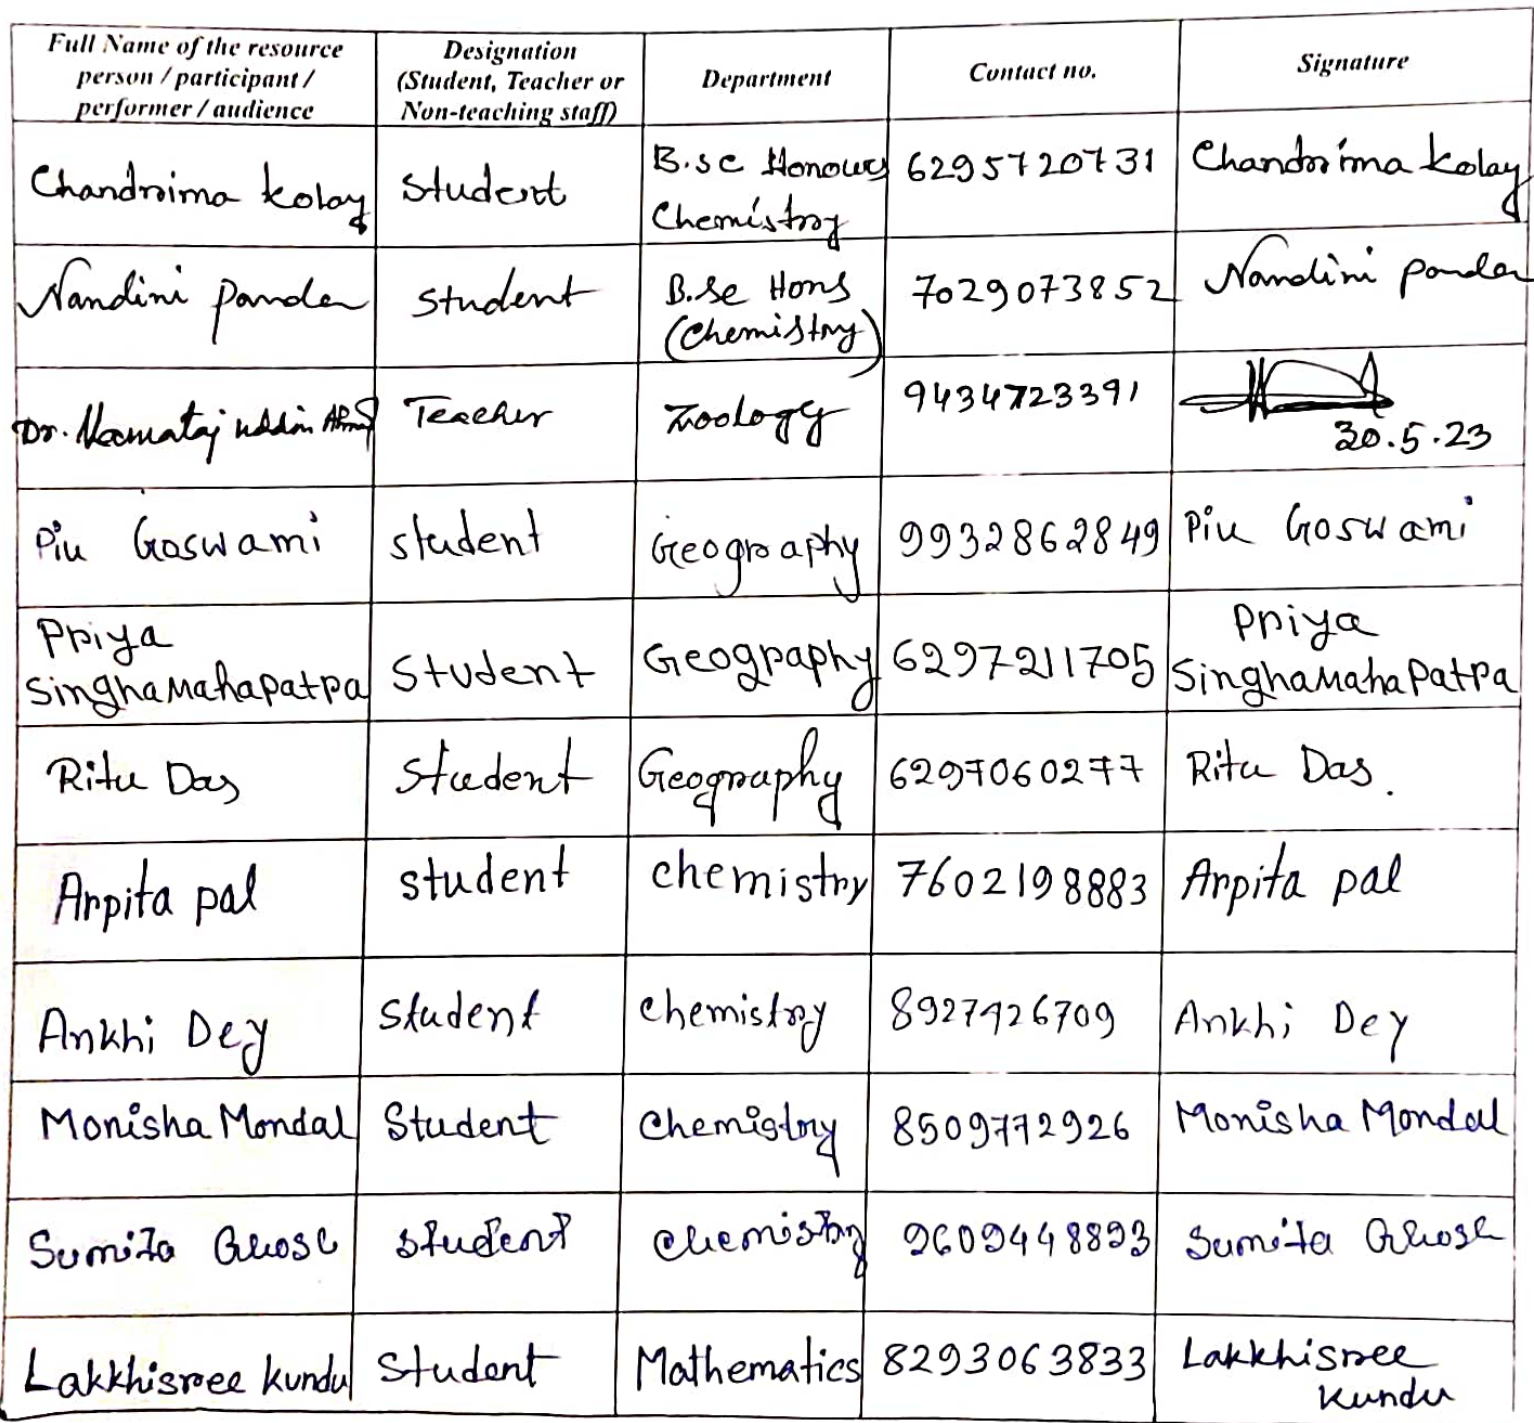 Full Name of the resource person / participant / performer / audience | Designation (Student, Teacher or Non-teaching staff) | Department | Contact no. | Signature
Chandrima Kolay | Student | B.sc Honours Chemistry | 6295720731 | Chandrima Kolay
Nandini Panda | Student | B.Sc Hons (Chemistry) | 7029073852 | Nandini Panda
Dr. uddin | Teacher | Zoology | 9434723391 | 30.5.23
Piu Goswami | student | Geography | 9932862849 | Piu Goswami
Priya Singhamahapatra | Student | Geography | 6297211705 | Priya Singhamahapatra
Ritu Das | Student | Geography | 6297060277 | Ritu Das.
Arpita pal | student | chemistry | 7602198883 | Arpita pal
Ankhi Dey | Student | Chemistry | 8927926709 | Ankhi Dey
Monisha Mondal | Student | Chemistry | 8509772926 | Monisha Mondal
Sumita Ghosh | Student | Chemistry | 9609448893 | Sumita Ghosh
Lakkhisree Kundu | Student | Mathematics | 8293063833 | Lakkhisree Kundu